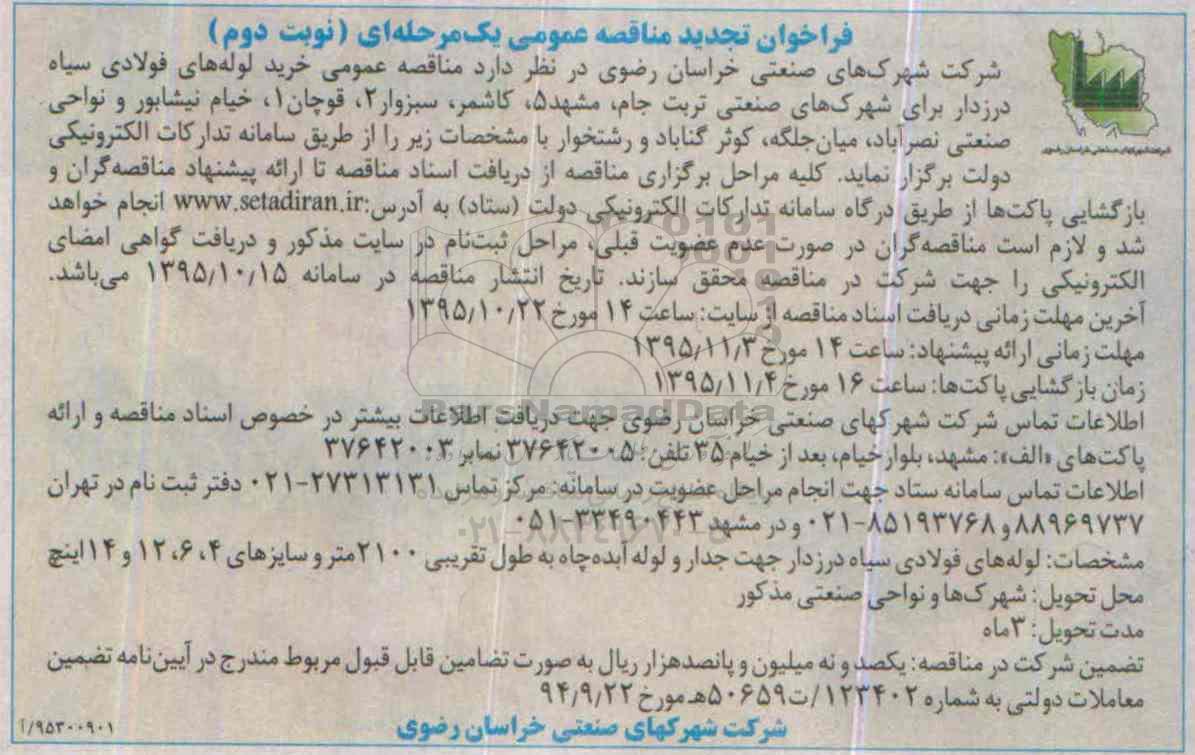 فراخوان تجدید مناقصه عمومی یک‌مرحله‌ای (نوبت دوم)
شرکت شهرک‌های صنعتی خراسان رضوی در نظر دارد مناقصه عمومی خرید لوله‌های فولادی سیاه
درزدار برای شهرک‌های صنعتی تربت جام، مشهد۵، کاشمر، سبزوار۲، قوچان۱، خیام نیشابور و نواحی
صنعتی نصرآباد، میان‌جلگه، کوثر گناباد و رشتخوار با مشخصات زیر را از طریق سامانه تدارکات الکترونیکی
شرکت شهرکهای صنعتی خراسان رضوی
دولت برگزار نماید. کلیه مراحل برگزاری مناقصه از دریافت اسناد مناقصه تا ارائه پیشنهاد مناقصه‌گران و
بازگشایی پاکت‌ها از طریق درگاه سامانه تدارکات الکترونیکی دولت (ستاد) به آدرس:www.setadiran.ir انجام خواهد
شد و لازم است مناقصه‌گران در صورت عدم عضویت قبلی، مراحل ثبت‌نام در سایت مذکور و دریافت گواهی امضای
الکترونیکی را جهت شرکت در مناقصه محقق سازند. تاریخ انتشار مناقصه در سامانه ۱۳۹۵/۱۰/۱۵ می‌باشد.
آخرین مهلت زمانی دریافت اسناد مناقصه از سایت: ساعت ۱۴ مورخ ۱۳۹۵/۱۰/۲۲
مهلت زمانی ارائه پیشنهاد: ساعت ۱۴ مورخ ۱۳۹۵/۱۱/۳
زمان بازگشایی پاکت‌ها: ساعت ۱۶ مورخ ۱۳۹۵/۱۱/۴
ParsNamadData
اطلاعات تماس شرکت شهرکهای صنعتی خراسان رضوی جهت دریافت اطلاعات بیشتر در خصوص اسناد مناقصه و ارائه
پاکت‌های «الف»: مشهد، بلوار خیام، بعد از خیام ۳۵ تلفن: ۳۷۶۴۲۰۰۵ نمابر ۳۷۶۴۲۰۰۳
اطلاعات تماس سامانه ستاد جهت انجام مراحل عضویت در سامانه: مرکز تماس ۲۷۳۱۳۱۳۱-۰۲۱ دفتر ثبت نام در تهران
۸۸۹۶۹۷۳۷ و ۸۵۱۹۳۷۶۸-۰۲۱ و در مشهد ۳۳۴۹۰۴۴۳-۰۵۱
مشخصات: لوله‌های فولادی سیاه درزدار جهت جدار و لوله آبده‌چاه به طول تقریبی ۲۱۰۰ متر و سایزهای ۴، ۶، ۱۲ و ۱۴ اینچ
محل تحویل: شهرک‌ها و نواحی صنعتی مذکور
مدت تحویل: ۳ماه
تضمین شرکت در مناقصه: یکصد و نه میلیون و پانصدهزار ریال به صورت تضامین قابل قبول مربوط مندرج در آیین‌نامه تضمین
معاملات دولتی به شماره ۱۲۳۴۰۲/ت۵۰۶۵۹هـ مورخ ۹۴/۹/۲۲
شرکت شهرکهای صنعتی خراسان رضوی
۹۵۳۰۰۹۰۱/آ